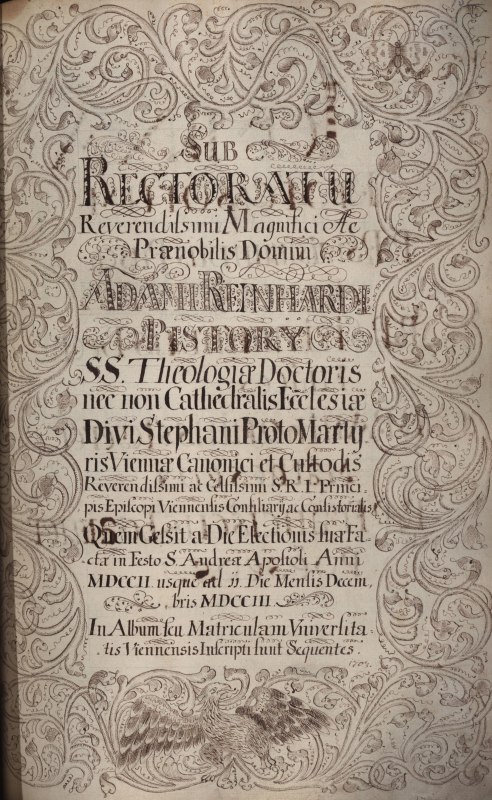 SUB
RECTORATU
Reverendissimi Magnifici Ac
Prænobilis Domini
ADAMI REINHARDI
PISTORY
SS. Theologiæ Doctoris
nec non Cathedralis Ecclesiæ
Divi Stephani ProtoMarty
ris Viennæ Canonici et Custodis
Reverendissimi ac Celsissimi S. R. I. Princi
pis Episcopi Viennensis Consiliarij ac Consistorialis
Quem Gessit a Die Electionis suæ Fa
ctæ in Festo S. Andreæ Apostoli Anni
MDCCII usque ad 11. Die Mensis Decem
bris MDCCIII.
In Album seu Matriculam Vniversita
tis Viennensis Inscripti sunt Sequentes.
1703.